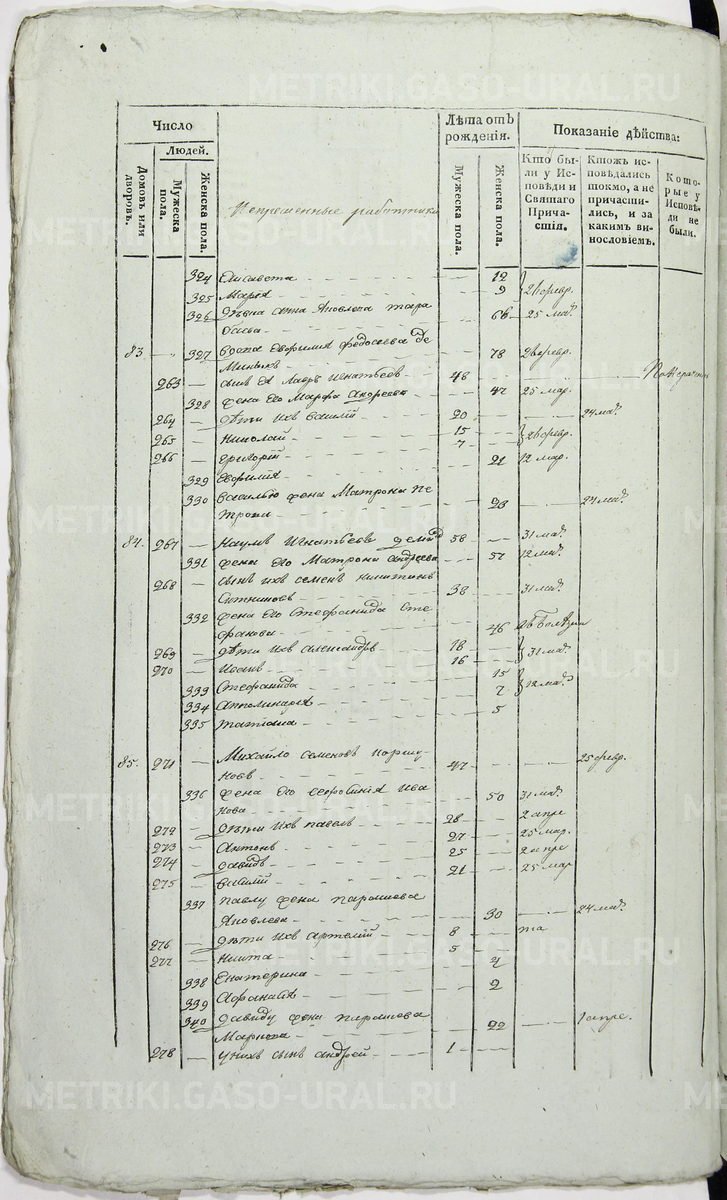 METRIKI.GASO-URAL.RU
Число
Лѣта отъ рожденія.
Показаніе дѣйства:
Людей.
Домовъ или дворовъ.
Мужеска пола.
Женска пола.
Непременные работники
Мужеска пола.
Женска пола.
Кто были у Исповѣди и Святаго Причастія.
Ктожъ исповѣдались токмо, а не причастились, и за какимъ винословіемъ.
Которые у Исповѣди не были.
324 Елисавета 12
325 Марія 9 2 февр.
326 Дѣвка Анна Яковлева Тара 66 25 мар.
сова
83 327 Вдова Евфимия Федосеева Де 78 2 февр.
263 сынъ ея Лавръ Игнатьевъ 48
328 жена его Марфа Андреева 47 25 мар.
264 дѣти ихъ Василій 20 24 мар.
265 Николай 15
266 Григорій 7 2 февр.
329 Евфимія 21 12 мар.
330 Василью жена Матрона Пе
трова 23 24 мар.
84. 267 Наумъ Игнатьевъ 58 31 мар.
331 жена его Матрона Андреева 57 12 мар.
268 сынъ ихъ Семенъ Никитинъ
38 31 мар.
332 жена его Стефанида Сте
фанова 46
269 дѣти ихъ Александръ 18
270 Иоаннъ 16 31 мар.
333 Стефанида 15
334 Апполинарія 7 12 мар.
335 Татіана 5
85. 271 Михайло Семеновъ Коршу
новъ 47 25 февр.
336 жена его Ива
нова 50 31 мар.
272 дѣти ихъ Павелъ 28 2 апре
273 Антонъ 27 25 мар.
274 Давидъ 25 2 апре
275 Василій 21 25 мар
337 Павлу жена Парасковья
Яковлева 30 24 мар.
276 дѣти ихъ Артемій 8 та
277 Никита 5
338 Екатерина 4
339 2
340 Давиду жена Парасковья
Маркова 22 1 апре.
278 у нихъ сынъ Андрей 1